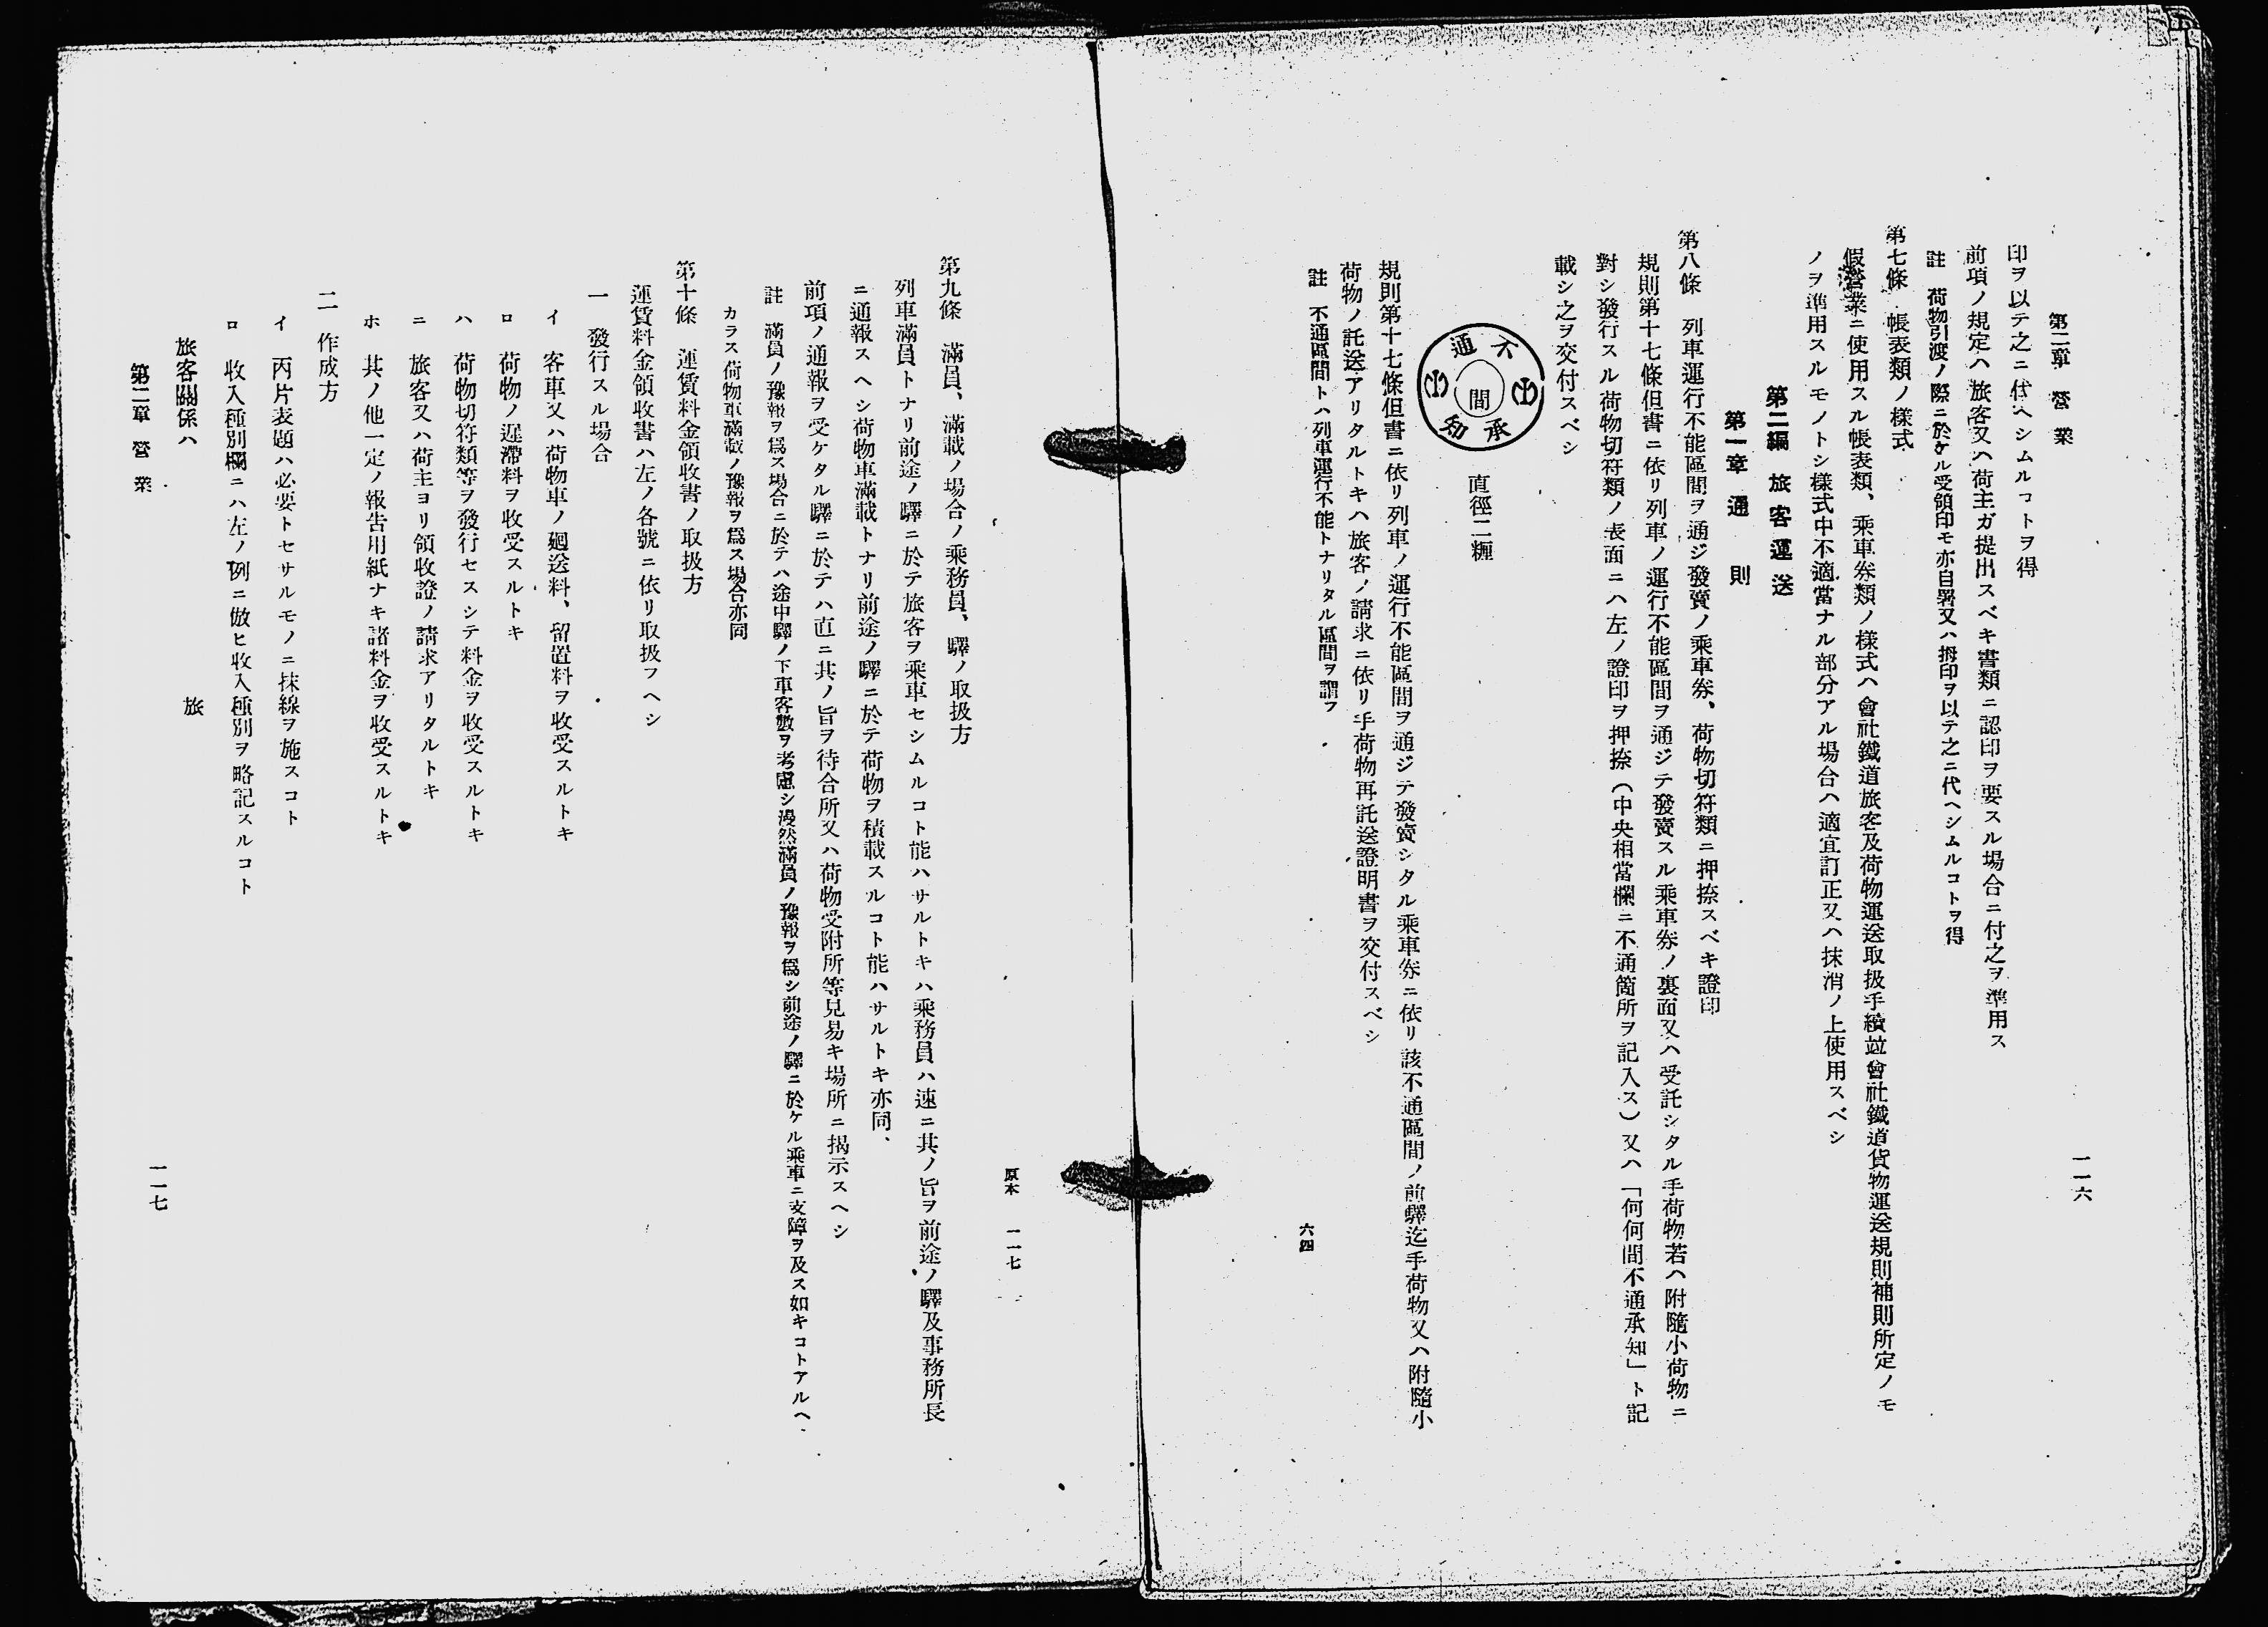 第二章 營業
一一六
印ヲ以テ之ニ代ヘシムルコトヲ得
前項ノ規定ハ旅客又ハ荷主ガ提出スベキ書類ニ認印ヲ要スル場合ニ付之ヲ準用ス
註 荷物引渡ノ際ニ於ケル受領印モ亦自署又ハ拇印ヲ以テ之ニ代ヘシムルコトヲ得
第七條 帳表類ノ樣式
假營業ニ使用スル帳表類、乘車券類ノ樣式ハ會社鐵道旅客及荷物運送取扱手續竝會社鐵道貨物運送規則補則所定ノモ
ノヲ準用スルモノトシ樣式中不適當ナル部分アル場合ハ適宜訂正又ハ抹消ノ上使用スベシ
第二編 旅客運送
第一章 通則
第八條 列車運行不能區間ヲ通ジ發賣ノ乘車券、荷物切符類ニ押捺スベキ證印
規則第十七條但書ニ依リ列車ノ運行不能區間ヲ通ジテ發賣スル乘車券ノ裏面又ハ受託シタル手荷物若ハ附隨小荷物ニ
對シ發行スル荷物切符類ノ表面ニハ左ノ證印ヲ押捺(中央相當欄ニ不通箇所ヲ記入ス)又ハ「何何間不通承知」ト記
載シ之ヲ交付スベシ
不通
間
承知
直徑二糎
規則第十七條但書ニ依リ列車ノ運行不能區間ヲ通ジテ發賣シタル乘車券ニ依リ該不通區間ノ前驛迄手荷物又ハ附隨小
荷物ノ託送アリタルトキハ旅客ノ請求ニ依リ手荷物再託送證明書ヲ交付スベシ
註 不通區間トハ列車運行不能トナリタル區間ヲ謂フ
六四
原本 一一七
第九條 滿員、滿載ノ場合ノ乘務員、驛ノ取扱方
列車滿員トナリ前途ノ驛ニ於テ旅客ヲ乘車セシムルコト能ハサルトキハ乘務員ハ速ニ其ノ旨ヲ前途ノ驛及事務所長
ニ通報スヘシ荷物車滿載トナリ前途ノ驛ニ於テ荷物ヲ積載スルコト能ハサルトキ亦同、
前項ノ通報ヲ受ケタル驛ニ於テハ直ニ其ノ旨ヲ待合所又ハ荷物受附所等見易キ場所ニ揭示スヘシ
註 滿員ノ豫報ヲ爲ス場合ニ於テハ途中驛ノ下車客數ヲ考慮シ漫然滿員ノ豫報ヲ爲シ前途ノ驛ニ於ケル乘車ニ支障ヲ及ス如キコトアルヘ
カラス荷物車滿載ノ豫報ヲ爲ス場合亦同
第十條 運賃料金領收書ノ取扱方
運賃料金領收書ハ左ノ各號ニ依リ取扱フヘシ
一 發行スル場合
イ 客車又ハ荷物車ノ廻送料、留置料ヲ收受スルトキ
ロ 荷物ノ遲滯料ヲ收受スルトキ
ハ 荷物切符類等ヲ發行セスシテ料金ヲ收受スルトキ
ニ 旅客又ハ荷主ヨリ領收證ノ請求アリタルトキ
ホ 其ノ他一定ノ報告用紙ナキ諸料金ヲ收受スルトキ
二 作成方
イ 丙片表題ハ必要トセサルモノニ抹線ヲ施スコト
ロ 收入種別欄ニハ左ノ例ニ倣ヒ收入種別ヲ略記スルコト
旅客關係ハ 旅
第二章 營業
一一七